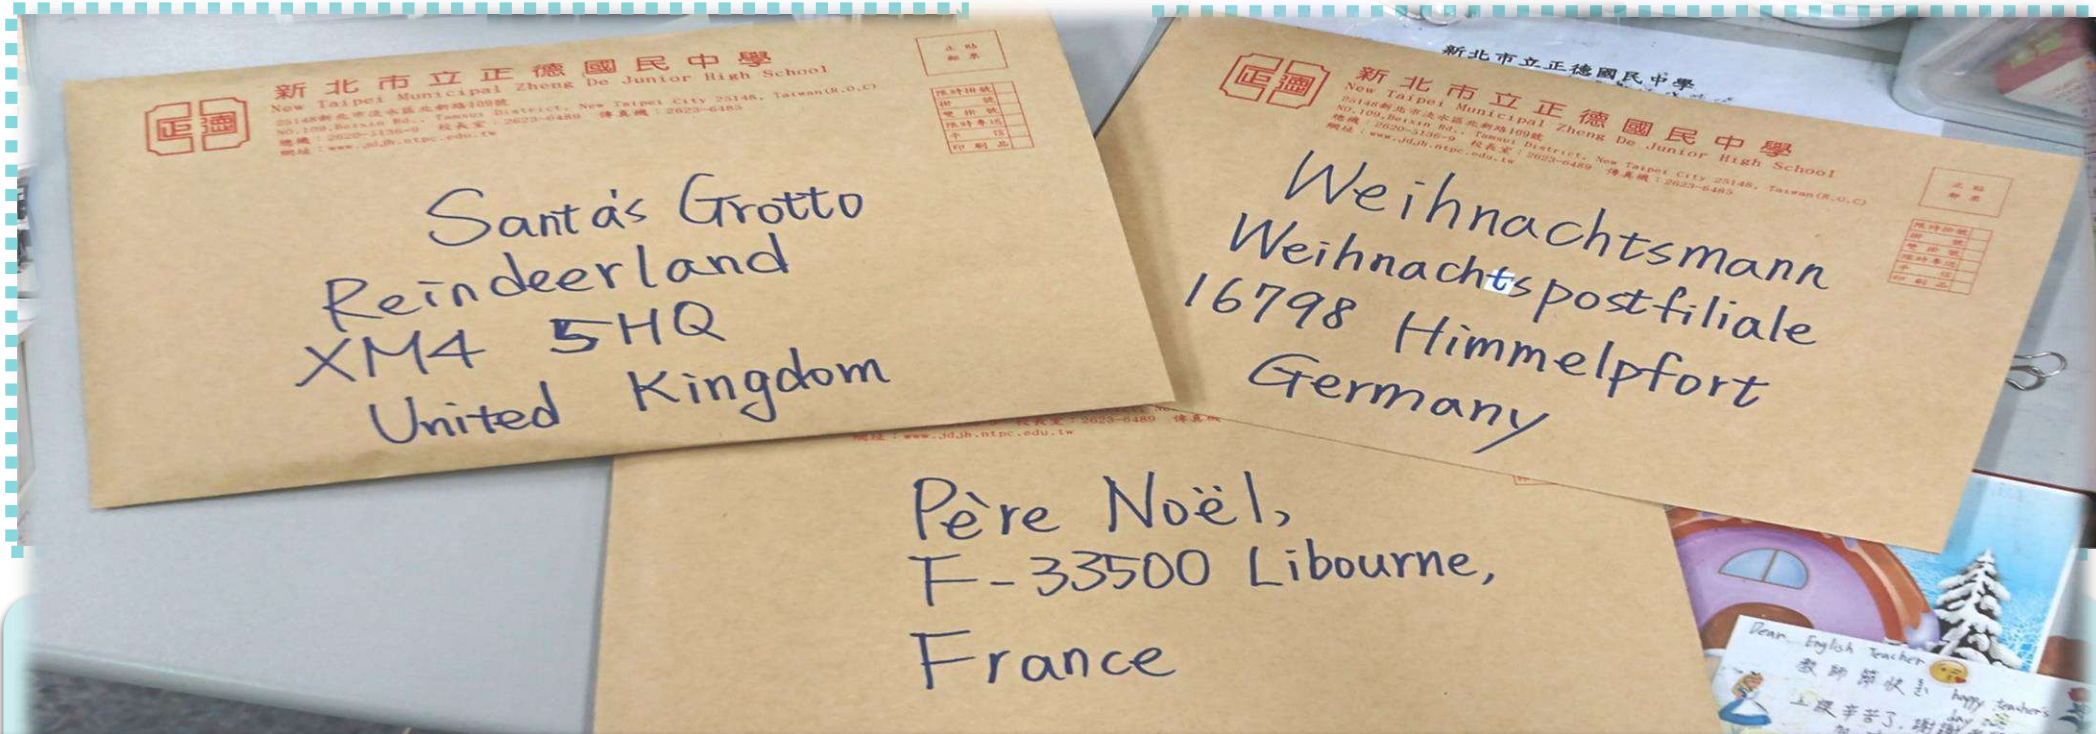 新北市立正德國民中學
New Taipei Municipal Zheng De Junior High School
25148新北市淡水區北新路109號
NO.109,Beixin Rd., Tamsui District, New Taipei City 25148, Taiwan(R.O.C)
總機：2620-5136~9 校長室：2623-6489 傳真機：2623-6485
網址：www.jdjh.ntpc.edu.tw
正貼
郵票
限時掛號
掛號
雙掛號
限時專送
平信
印刷品
Santa's Grotto
Reindeerland
XM4 5HQ
United Kingdom
新北市立正德國民中學
新北市立正德國民中學
New Taipei Municipal Zheng De Junior High School
25148新北市淡水區北新路109號
NO.109,Beixin Rd., Tamsui District, New Taipei City 25148, Taiwan(R.O.C)
總機：2620-5136~9 校長室：2623-6489 傳真機：2623-6485
網址：www.jdjh.ntpc.edu.tw
正貼
郵票
限時掛號
掛號
雙掛號
限時專送
平信
印刷品
Weihnachtsmann
Weihnachtspostfiliale
16798 Himmelpfort
Germany
校長室：2623-6489 傳真機
網址：www.jdjh.ntpc.edu.tw
Père Noël,
F-33500 Libourne,
France
Dear English Teacher
教師節快
happy teacher's
day
上課辛苦了,謝謝